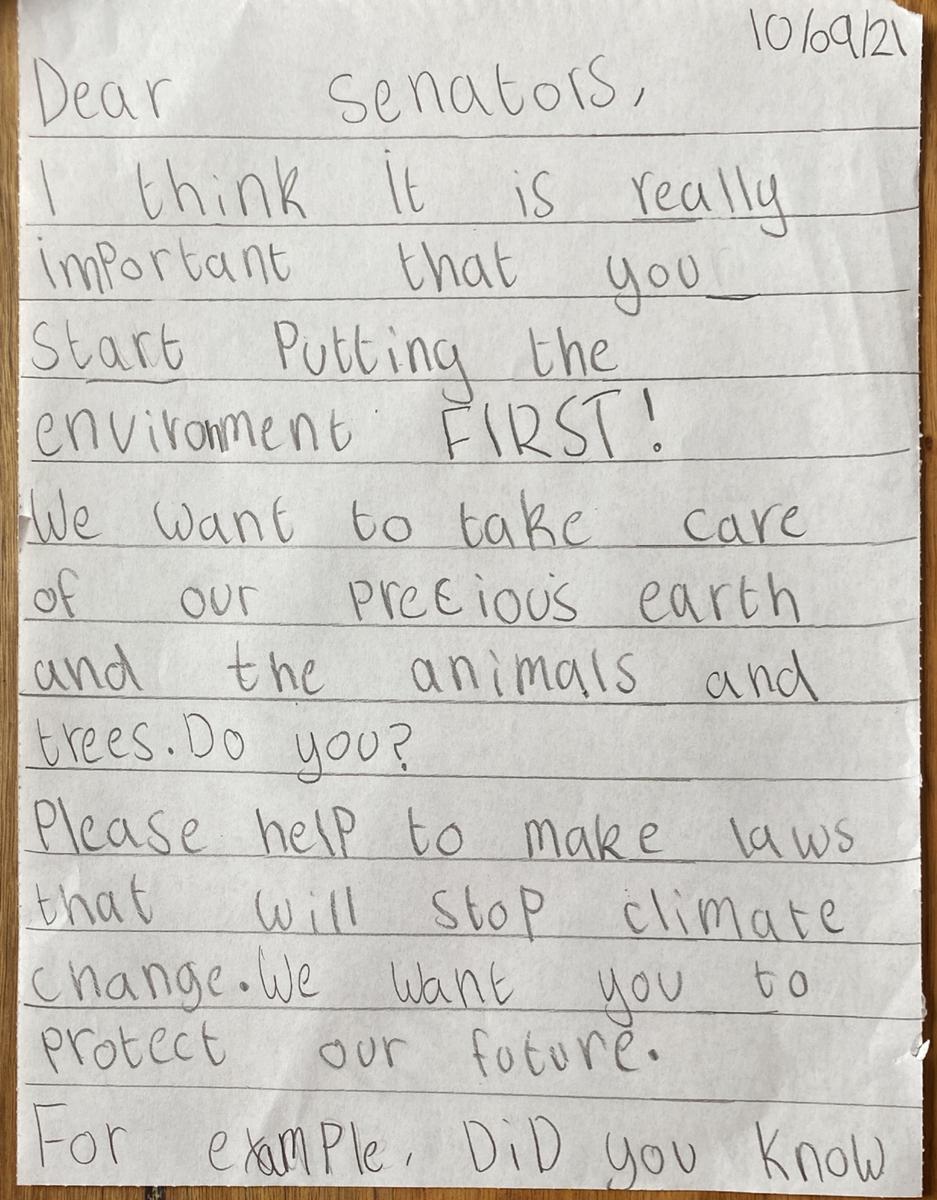 10/09/21
Dear Senators,
I think it is really
important that you
Start Putting the
environment FIRST!
We want to take care
of our precious earth
and the animals and
trees. Do you?
Please help to make laws
that will stop climate
change. We want you to
protect our future.
For example, DiD you know